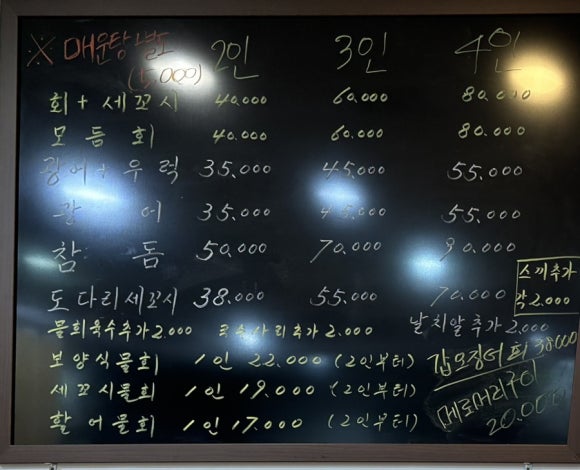 ※ 매운탕 별도 2인 3인 4인
(5,000)
회+세꼬시 40.000 60.000 80.000
모듬회 40.000 60.000 80.000
광어+우럭 35.000 45.000 55.000
광어 35.000 45.000 55.000
참돔 50.000 70.000 90.000
스끼추가
각 2.000
도다리세꼬시 38.000 55.000 70.000
물회육수추가 2.000 국수사리추가 2.000 날치알추가 2.000
보양식물회 1인 22.000 (2인부터) 갑오징어 피 38000
세꼬시물회 1인 19.000 (2인부터) 메로머리구이
활어물회 1인 17.000 (2인부터) 20.000